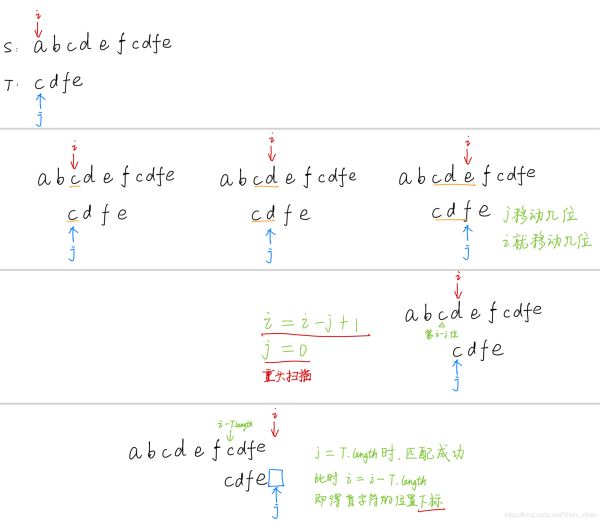 i
S: a b c d e f c d f e
T: c d f e
j
i i i
a b c d e f c d f e a b c d e f c d f e a b c d e f c d f e
c d f e c d f e c d f e j移动几位
i就移动几位
j j j
i
a b c d e f c d f e
i = i - j + 1 第i-j位
j = 0 c d f e
重头扫描
j
i-T.length i
a b c d e f c d f e
c d f e j = T.length 时, 匹配成功
此时 i = i - T.length
即得首字符的位置下标
j